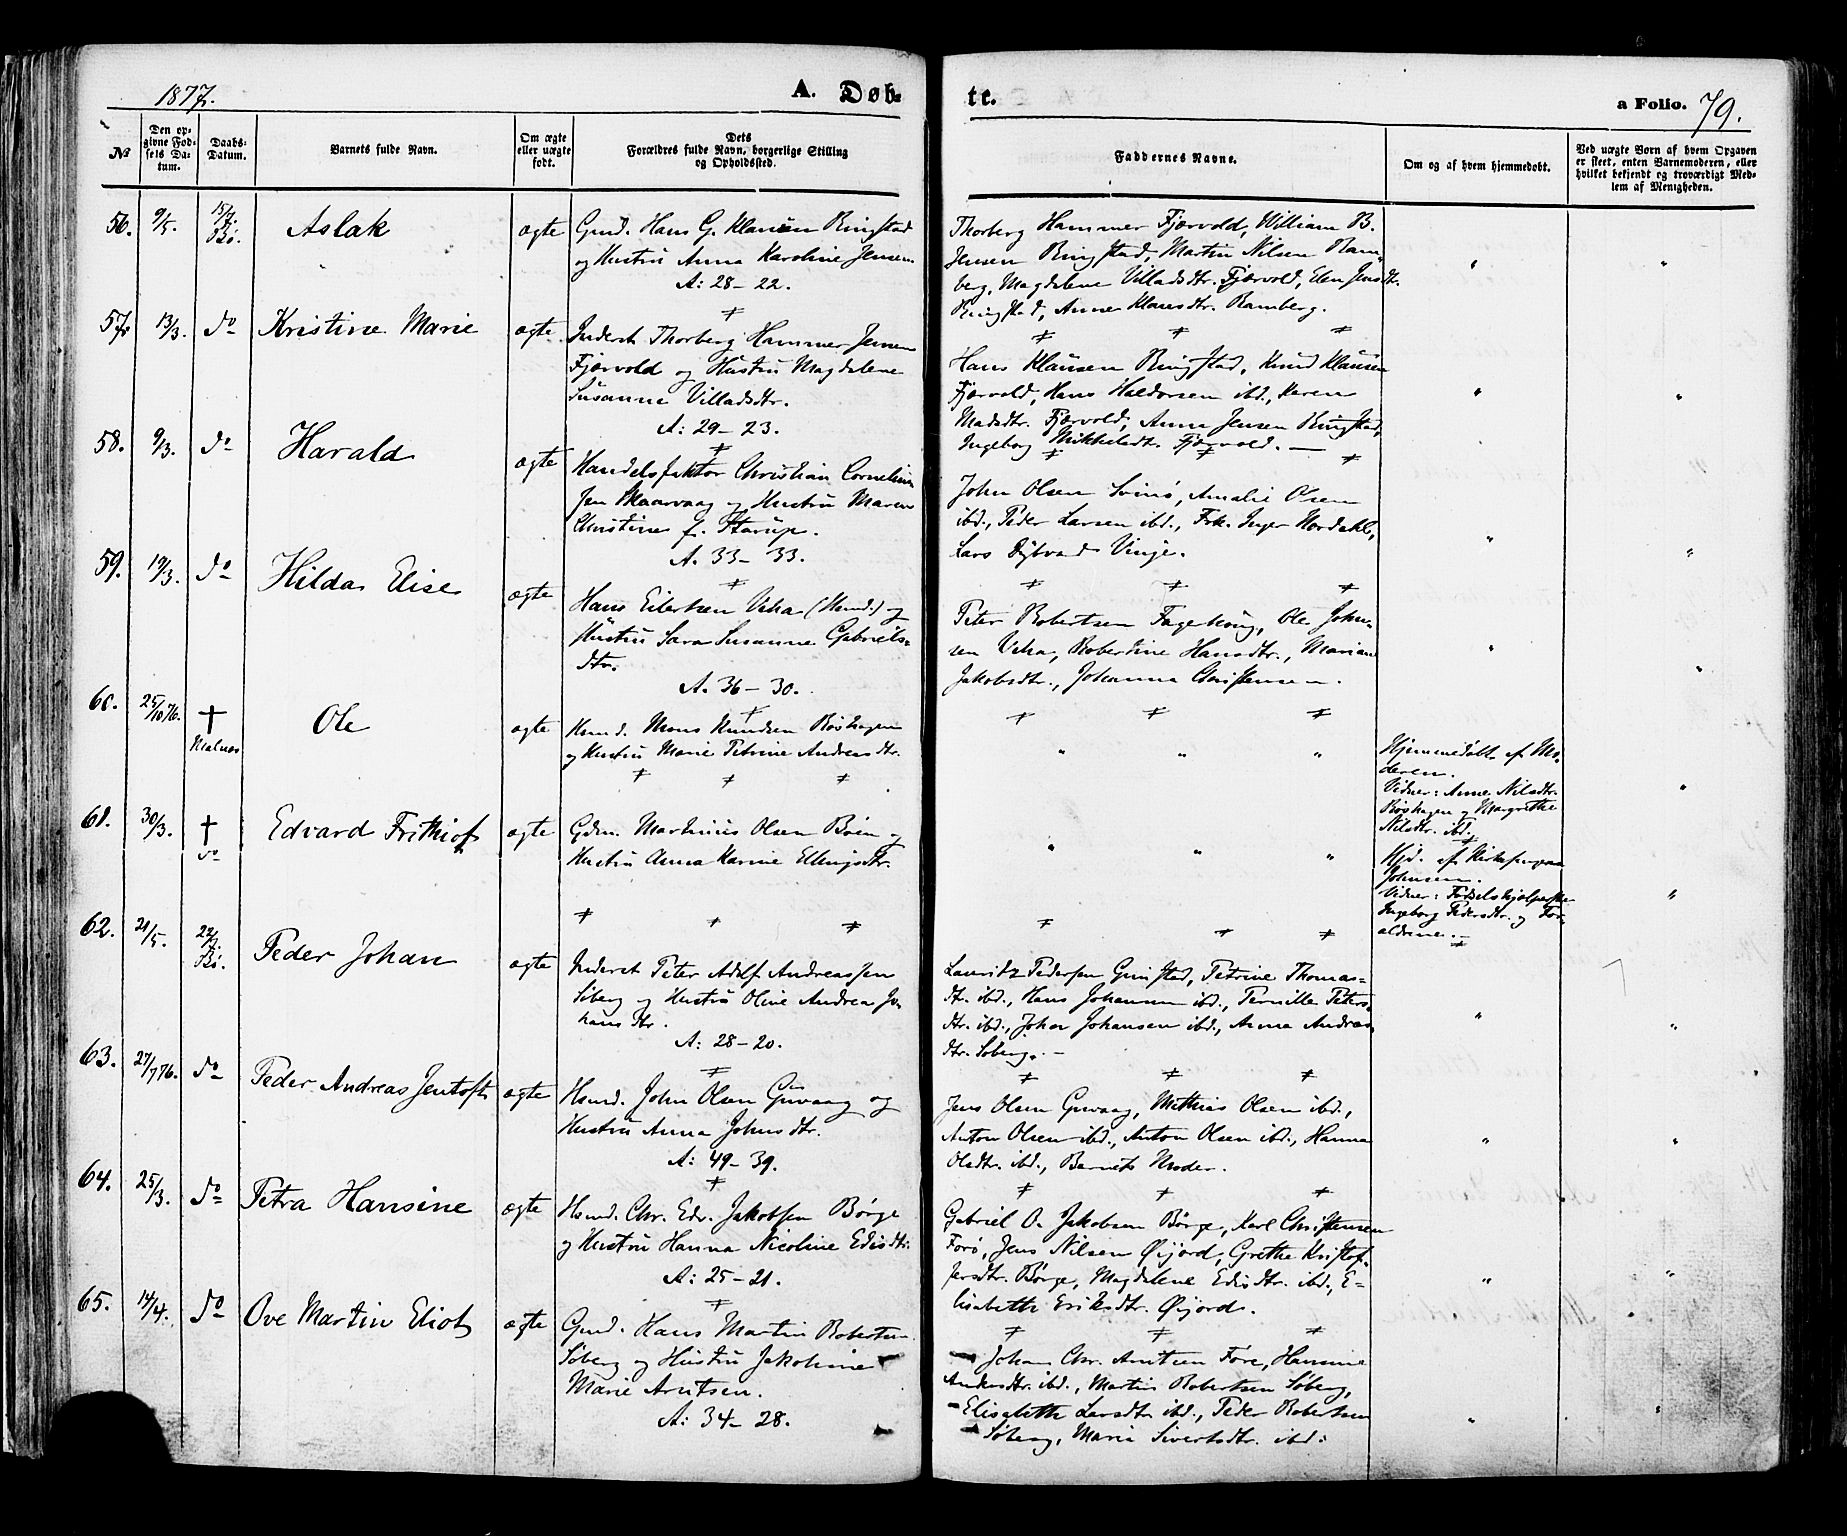 1877.
A. Døb-
te.
a Folio. 79.
No
Den op-
givne Fød-
sels Da-
tum.
Daabs-
Datum.
Barnets fulde Navn.
Om ægte
eller uægte
født.
Dets
Forældres fulde Navn, borgerlige Stilling
og Opholdssted.
Faddernes Navne.
Om og af hvem hjemmedøbt.
Ved uægte Børn af hvem Opgaven
er skeet, enten Barnemoderen, eller
hvilket bekjendt og troværdigt Med-
lem af Menigheden.
56. 9/5. 15/7. Bø. Aslak ægte
Gmd. Hans G. Klausen Ringstad
og Hustru Anna Karoline Jensen.
A: 28-22.
Thorberg Hammer Fjærvold, William B.
Jensen Ringstad, Martin Nilsen Ram-
berg, Magdalene Villadsdtr. Fjærvold, Elen Jensdtr.
Ringstad, Anne Klausdtr. Ramberg.
57. 13/3. do Kristine Marie ægte
Inderst Thorberg Hammer Jensen
Fjærvold og Hustru Magdalene
Susanna Villadsdtr.
A: 29-23.
Hans Klausen Ringstad, Knud Klausen
Fjærvold, Hans Haldorsen ibd., Karen
Madsdtr. Fjærvold, Anna Jensen Ringstad,
Ingeborg Mikkelsdtr. Fjærvold. —
58. 9/3. do Harald ægte
Handelsfaktor Christian Cornelius-
sen Skaarvaag og Hustru Maren
Christine f. Starup.
A. 33-33.
John Olsen Svinø, Amalie Olsen
ibd., Peder Larsen ibd., Frk. Inger Hordahl,
Lars Dybvad Vinje.
59. 19/3. do Hilda Elise ægte
Hans Eilertsen Veha (Hsmd.) og
Hustru Sara Susanne Gabriels-
dtr.
A. 36-30.
Peter Robertsen Fageskoug, Ole John-
sen Veha, Robertine Hansdtr., Mariane
Jakobsdtr., Johanna Christensen.
60. 25/10 76. † Malnes Ole ægte
Hsmd. Mons Knudsen Bøshagen
og Hustru Marie Petrine Andreasdtr.
Hjemmedøbt af Mo-
deren.
Vidner: Anne Nilsdtr.
Bøshagen og Margrethe
Nilsdtr. ibd.
61. 30/3. † do Edvard Frithiof ægte
Gdm. Markusius Olsen Bøen og
Hustru Anna Karine Ellingsdtr.
Hjd. af Kirkesanger
Johnsen.
Vidner: Fødselshjælperske
Ingeborg Pedersdtr. og For-
ældrene. —
62. 21/5. 22/7. Bø. Peder Johan ægte
Inderst Peter Adolf Andreassen
Søberg og Hustru Oline Andrea Jo-
hansdtr.
A: 28-20.
Lauritz Pedersen Grimstad, Petrine Thomas-
dtr. ibd., Hans Johansen ibd., Pernille Peters-
dtr. ibd., Johan Johansen ibd., Anna Andreas-
dtr. Søberg. —
63. 27/7 76. do Peder Andreas Jentoft ægte
Hsmd. John Olsen Guvaag og
Hustru Anna Johnsdtr.
A: 49-39.
Jens Olsen Guvaag, Mathias Olsen ibd.,
Anton Olsen ibd., Anton Olsen ibd., Hanna
Olsdtr. ibd., Barnets Moder.
64. 25/3. do Petra Hansine ægte
Hsmd. Chr. Edv. Jakobsen Børge
og Hustru Hanna Nicoline Edisdtr.
A: 25-21.
Gabriel O. Jakobsen Børge, Karl Christensen
Forø, Jens Nilsen Øijord, Grethe Kristof-
fersdtr. Børge, Magdalene Edisdtr. ibd., E-
lisabeth Eriksdtr. Øijord.
65. 14/4. do Ove Martin Eliot ægte
Gmd. Hans Martin Robertsen
Søberg og Hustru Jakobine
Marie Arntsen.
A: 34-28.
Johan Chr. Arntsen Føre, Hansine
Andersdtr. ibd., Martin Robertsen Søberg,
Elisabeth Larsdtr. ibd., Peder Robertsen
Søberg, Maria Sivertsdtr. ibd.